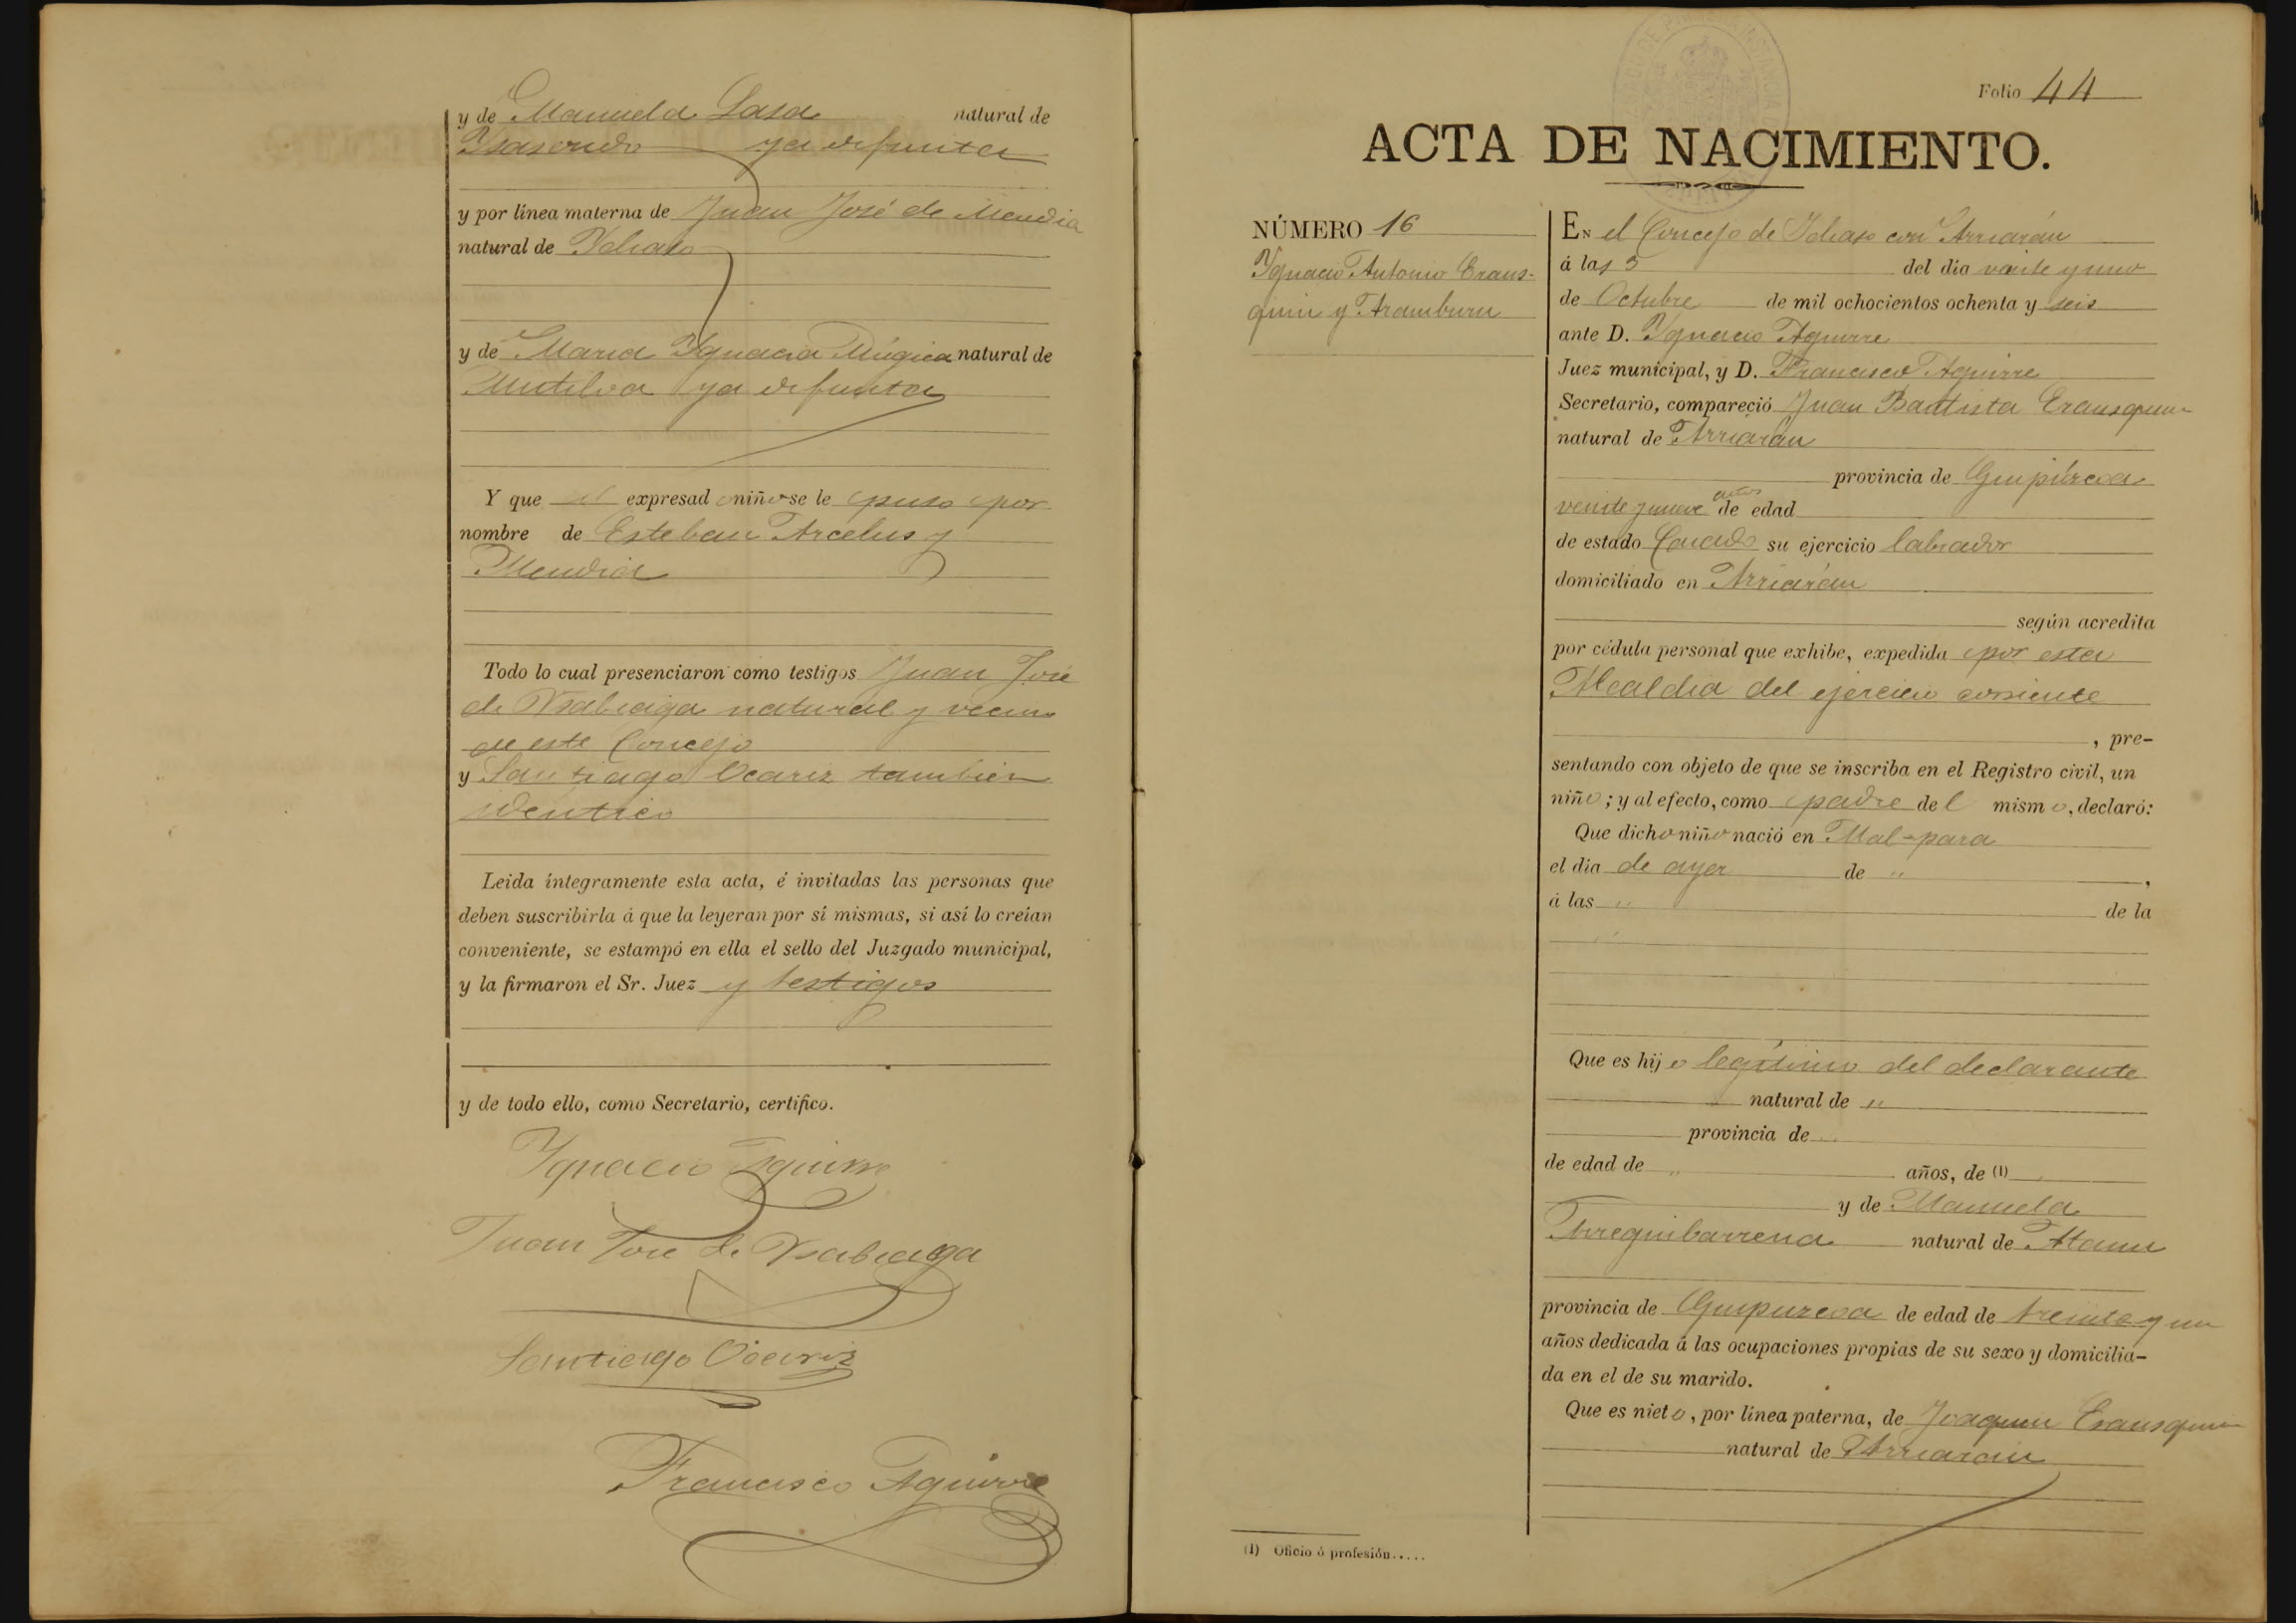 y de Manuela Lasa natural de
Ysasondo ya difunta
y por línea materna de Juan José de Mendia
natural de Ychaso
y de Maria Ygnacia Múgica natural de
Mutiloa ya difunta
Y que el expresado niño se le puso por
nombre de Esteban Arcelus y
Mendia
Todo lo cual presenciaron como testigos Juan José
de Ysabiaga natural y vecino
de este Concejo
y Santiago Ocariz tambien
identico
Leida íntegramente esta acta, é invitadas las personas que
deben suscribirla á que la leyeran por sí mismas, si así lo creían
conveniente, se estampó en ella el sello del Juzgado municipal,
y la firmaron el Sr. Juez y testigos
y de todo ello, como Secretario, certifico.
Ygnacio Aguirre
Juan José de Ysabiaga
Santiago Ocariz
Francisco Aguirre
Folio 44
ACTA DE NACIMIENTO.
NÚMERO 16
Ygnacio Antonio Eraus-
quin y Aramburu
EN el Concejo de Ichaso con Arriarán
á las 3 del dia veinte y uno
de Octubre de mil ochocientos ochenta y seis
ante D. Ygnacio Aguirre
Juez municipal, y D. Francisco Aguirre
Secretario, compareció Juan Bautista Erausquin
natural de Arriarán
provincia de Guipúzcoa
veinte y nueve años de edad
de estado Casado su ejercicio labrador
domiciliado en Arriarán
según acredita
por cédula personal que exhibe, expedida por esta
Alcaldia del ejercicio corriente
, pre-
sentando con objeto de que se inscriba en el Registro civil, un
niño; y al efecto, como padre del mismo, declaró:
Que dicho niño nació en Mal-para
el dia de ayer de "
,
á las " de la
"
Que es hijo legítimo del declarante
natural de "
provincia de
de edad de " años, de (1)
y de Manuela
natural de Ataun
provincia de Guipuzcoa de edad de treinta y un
años dedicada á las ocupaciones propias de su sexo y domicilia-
da en el de su marido.
Que es nieto, por línea paterna, de Joaquin Erausquin
natural de Arriarán
(1) Oficio ó profesión.....